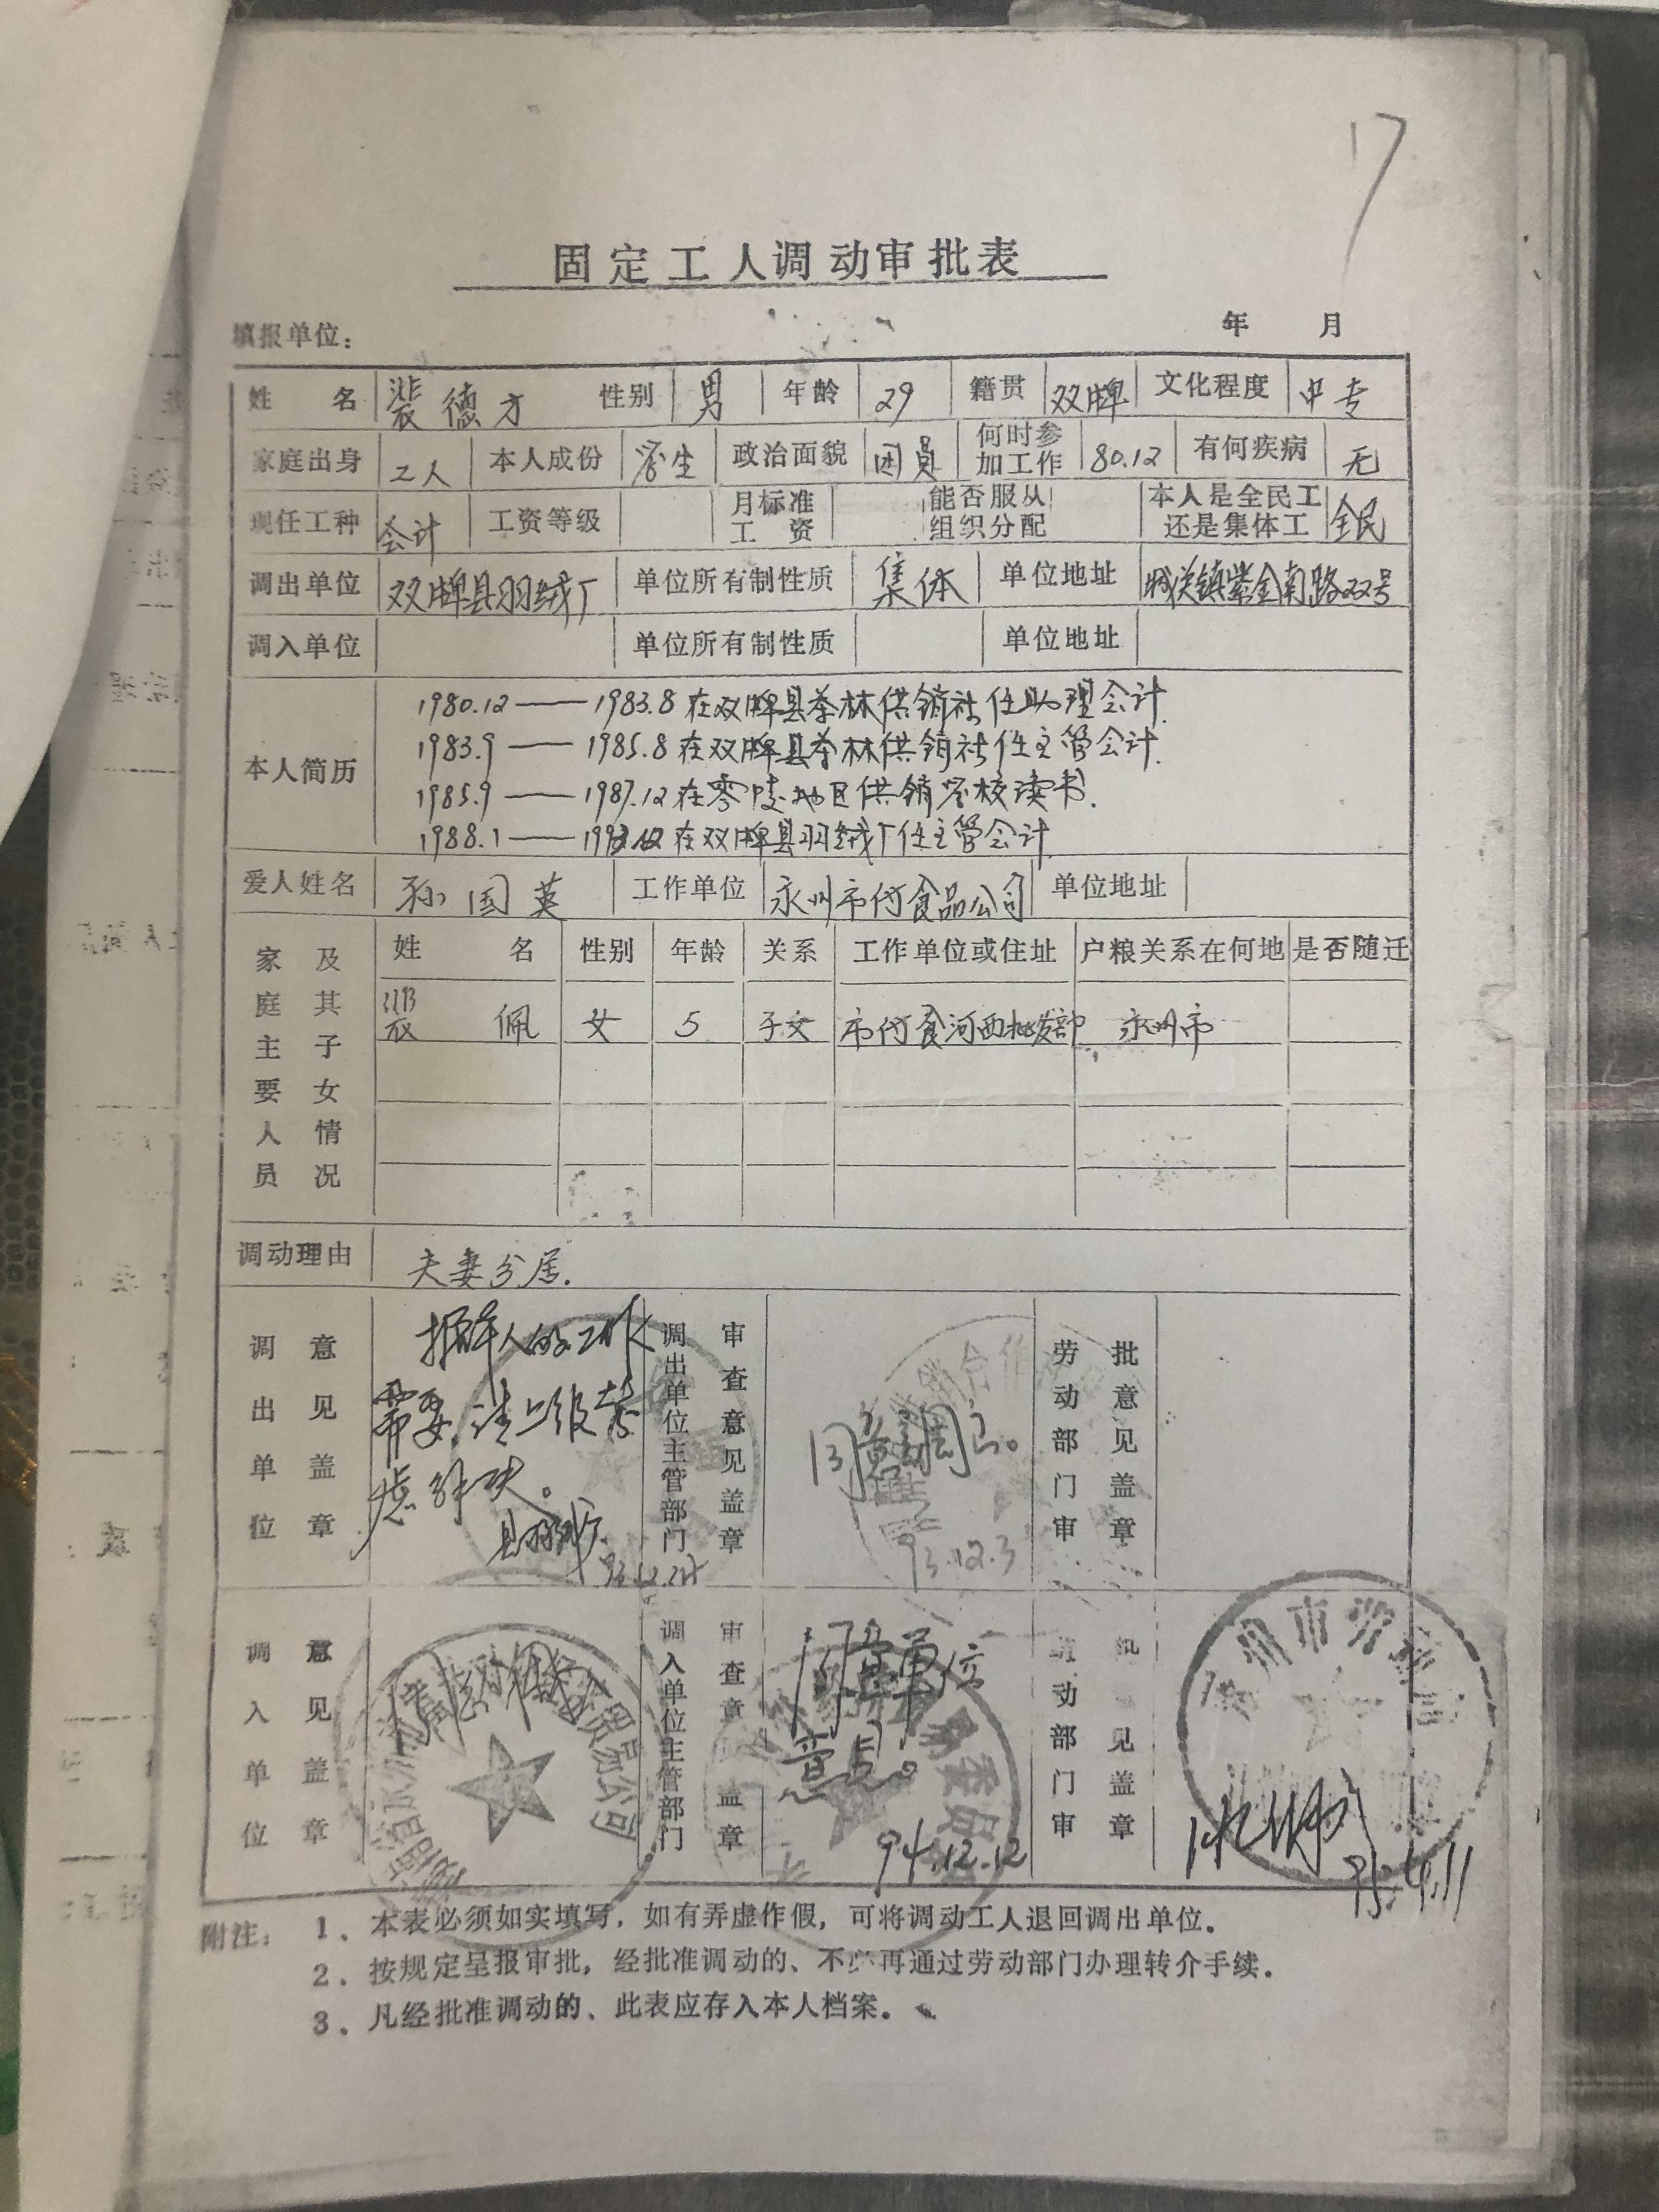 17
固定工人调动审批表
填报单位： 年 月
姓名 裴德才 性别 男 年龄 29 籍贯 双牌 文化程度 中专
家庭出身 工人 本人成份 学生 政治面貌 团员 何时参加工作 80.12 有何疾病 无
现任工种 会计 工资等级 月标准工资 能否服从组织分配 本人是全民工还是集体工 全民
调出单位 双牌县羽绒厂 单位所有制性质 集体 单位地址 城关镇紫金南路双号
调入单位 单位所有制性质 单位地址
本人简历
1980.12——1983.8在双牌县茶林供销社任助理会计
1983.9——1985.8在双牌县茶林供销社任主管会计.
1985.9——1987.12在零陵地区供销学校读书.
1988.1——在双牌县羽绒厂任主管会计
爱人姓名 孙国英 工作单位 永州市付食品公司 单位地址
家庭主要人员及其子女情况
姓名 性别 年龄 关系 工作单位或住址 户粮关系在何地 是否随迁
裴佩 女 5 子女 市付食河西批发部 永州市
调动理由 夫妻分居.
调出单位意见盖章
需要.请上级考
虑解决。
调出单位主管部门审查意见盖章
93.12.3
劳动部门审批意见盖章
调入单位意见盖章
贸易公司
调入单位主管部门审查意见盖章
意见。
94.12.12
劳动部门审批意见盖章
95.4.11
附注：1、本表必须如实填写，如有弄虚作假，可将调动工人退回调出单位。
2、按规定呈报审批，经批准调动的、不必再通过劳动部门办理转介手续。
3、凡经批准调动的、此表应存入本人档案。